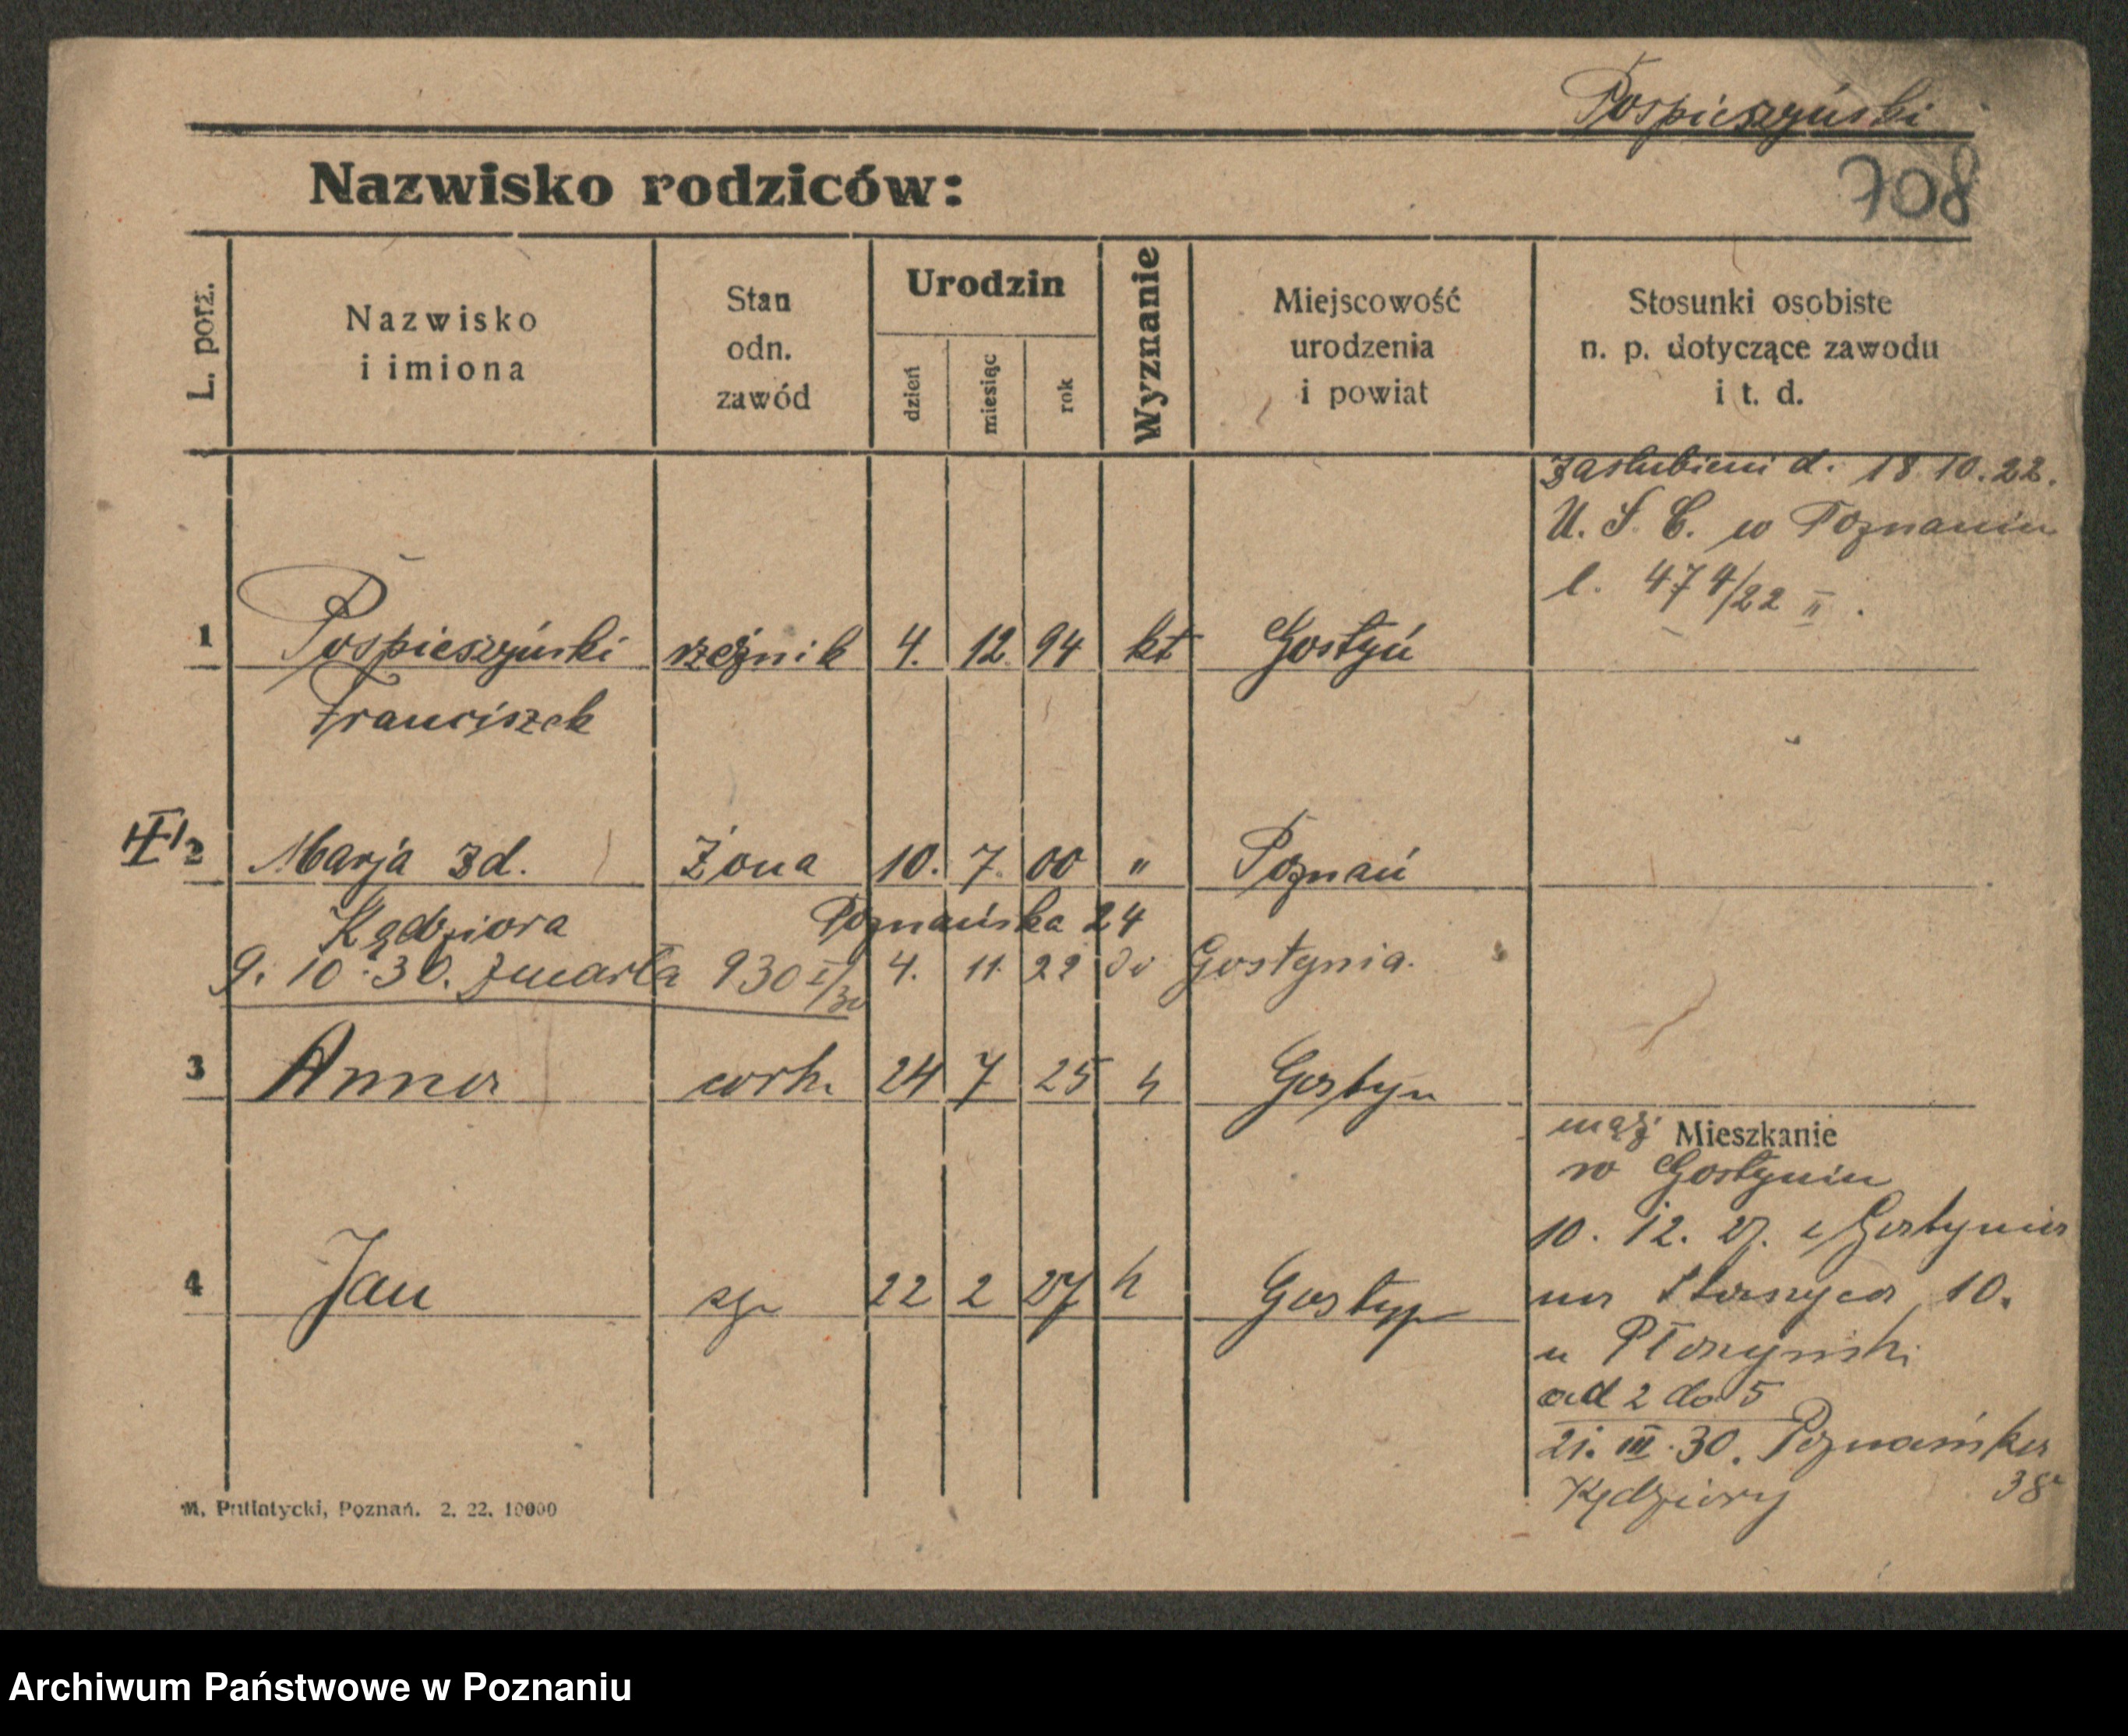 Pospieszyński
708
Nazwisko rodziców:
L. porz.
Nazwisko
i imiona
Stan
odn.
zawód
Urodzin
dzień
miesiąc
rok
Wyznanie
Miejscowość
urodzenia
i powiat
Stosunki osobiste
n. p. dotyczące zawodu
i t. d.
zaślubieni d. 18.10.22.
U. S. C. w Poznaniu
l. 474/22 II.
1 Pospieszyński rzeźnik 4. 12. 94 kt Gostyń
Franciszek
2 Marja zd. Żona 10. 7. 00 " Poznań
Kądziora Poznańska 24
9. 10. 30. zmarła 930 I/30 4. 11. 22 do Gostynia.
3 Anna córk. 24 7 25 Gostyn
mąż Mieszkanie
w Gostyniu
4 Jan 22 2 27 Gostyn
10. 12. 27. z Gostynia
10.
u
od 2 do 5
21. III. 30. Poznańska
Kądziory 38
M. Putiatycki, Poznań. 2. 22. 10000
Archiwum Państwowe w Poznaniu